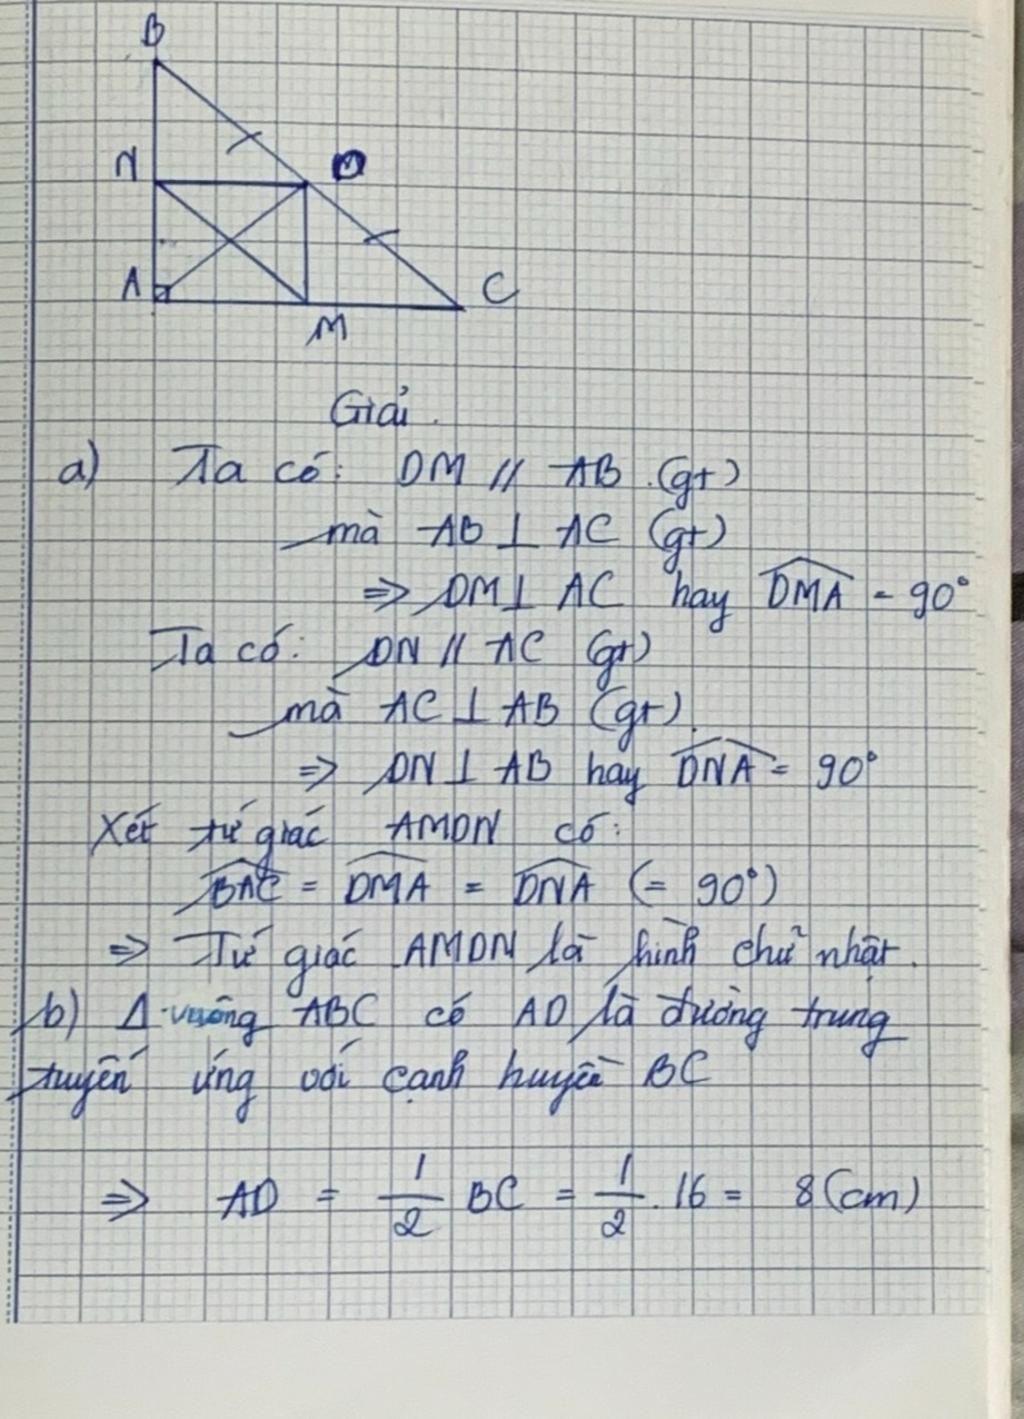 B
N
D
A
C
M
Giải.
a) Ta có: DM // AB (gt)
mà AB ⊥ AC (gt)
=> DM ⊥ AC hay \widehat{DMA} = 90°
Ta có: DN // AC (gt)
mà AC ⊥ AB (gt).
=> DN ⊥ AB hay \widehat{DNA} = 90°
Xét tứ giác AMDN có:
\widehat{BAC} = \widehat{DMA} = \widehat{DNA} (= 90°)
=> Tứ giác AMDN là hình chữ nhật.
b) Δ vuông ABC có AD là đường trung
tuyến ứng với cạnh huyền BC
=> AD = \frac{1}{2} BC = \frac{1}{2} . 16 = 8 (cm)